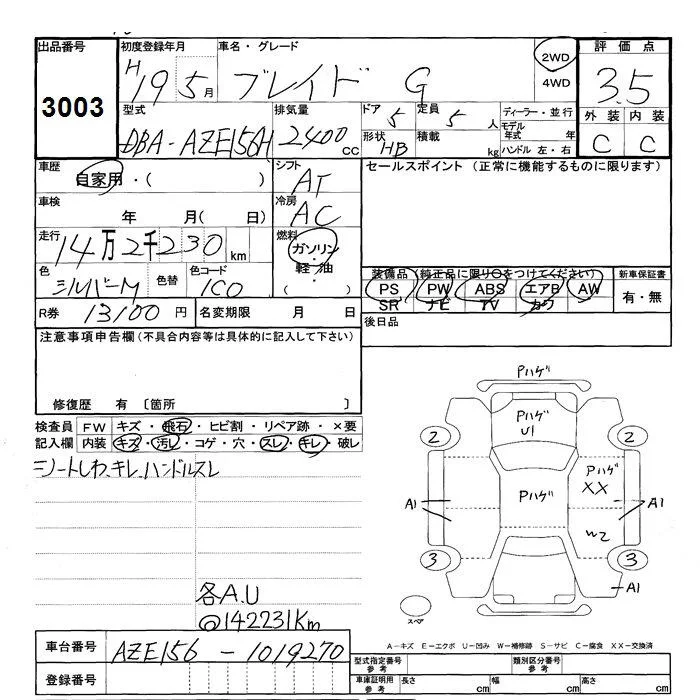 出品番号 初度登録年月 車名・グレード 2WD 評価点
3003 H19 5月 ブレイド G 4WD 3.5
型式 排気量 ドア 5 定員 5 人 ディーラー・並行 外装 内装
DBA-AZE156H 2400 CC 形状 HB 積載 kg モデル年式 年 C C
ハンドル 左・右
車歴 シフト セールスポイント (正常に機能するものに限ります)
自家用・( ) AT
車検 冷房
年 月( 日) AC
走行 燃料
14万2千230 km ガソリン・
色 色替 色コード 軽油・ 装備品 (純正品に限り○をつけてください) 新車保証書
シルバーM 1C0 ( ) PS PW ABS エアB AW 有・無
SR ナビ TV カワ
R券 13100 円 名変期限 月 日 後日品
注意事項申告欄(不具合内容等は具体的に記入して下さい)
修復歴 有 〔箇所 〕
検査員 FW キズ・飛石・ヒビ割・リペア跡・×要
記入欄 内装 キズ・汚レ・コゲ・穴・スレ・キレ・破レ
シートしわ、キレ、ハンドルスレ
各A.U
@142231Km
Pハゲ
Pハゲ
U1
2 2
Pハゲ Pハゲ
XX
A1 A1
W2
3 3
A1
スペア
A-キズ E-エクボ U-凹み W-補修跡 S-サビ C-腐食 XX-交換済
車台番号 AZE156-1019270 型式指定番号 参考 類別区分番号 参考
登録番号 車庫証明用 参考 長さ cm 幅 cm 高さ cm